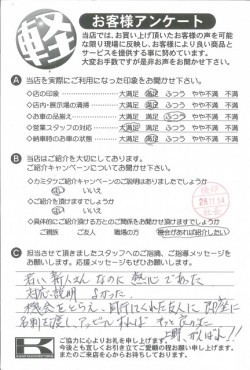 軽
お客様アンケート
当店では、お買い上げ頂いたお客様の声を可能
な限り現場に反映し、お客様により良い商品と
サービスを提供する事に努めています。
大変お手数ですが是非お声をお聞かせ下さい。
A 当店を実際にご利用になった印象をお聞かせ下さい。
◇店の印象 大満足 満足 ふつう やや不満 不満
◇店内・展示場の清掃 大満足 満足 ふつう やや不満 不満
◇お車の品揃え 大満足 満足 ふつう やや不満 不満
◇営業スタッフの対応 大満足 満足 ふつう やや不満 不満
◇納車時のお車の状態 大満足 満足 ふつう やや不満 不満
B 当店はご紹介を大切にしております。
ご紹介キャンペーンについてお聞かせ下さい。
◇カミタツご紹介キャンペーンのご説明はありましたでしょうか
はい いいえ
◇ご紹介を頂けますでしょうか
はい いいえ
◇具体的にご紹介頂ける方とのご関係をお聞かせ頂けますでしょうか
ご親族 ご友人 職場の方 機会があれば紹介したい
C 担当させて頂きましたスタッフへのご指摘、ご指導メッセージを
お願いします。応援メッセージもぜひお願いします。
若い新人さんなのに熱心であった
対応、説明 よかった。
機会をとらえ、同行してくれた友人に即座に
名刺を渡し、アピールすれば
K
ご協力に心よりお礼を申し上げます。
今後とも宜しくお引き立てご愛顧の程お願い申し上げます。
またのご来店を心からお待ちしております。